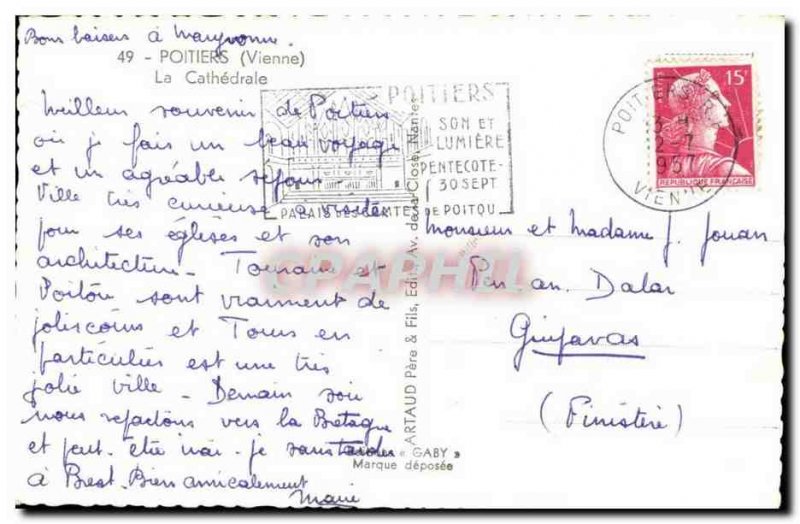 Bons baisers à Maryvonne.
49 - POITIERS (Vienne)
La Cathédrale
Meilleur souvenir de Poitiers
où je fais un beau voyage
et un agréable séjour
Ville très curieuse à visiter
pour ses églises et son
architecture - Touraine et
Poitou sont vraiment de
jolis coins et Tours en
particulier est une très
jolie ville - Demain soir
nous repartons vers la Bretagne
et peut-être irai-je
à Brest - Bien amicalement
Marie
POITIERS
SON ET
LUMIÈRE
PENTECOTE-
30 SEPT
PALAIS DES COMTES DE POITOU
ARTAUD Père & Fils, Edit., Av. de la Close, Nantes
« GABY »
Marque déposée
15F
POSTES
REPUBLIQUE FRANÇAISE
POITIERS
2-7
1957
VIENNE
Monsieur et Madame J. Jouan
Pen an Dalar
Guipavas
(Finistère)
CPAPHIL